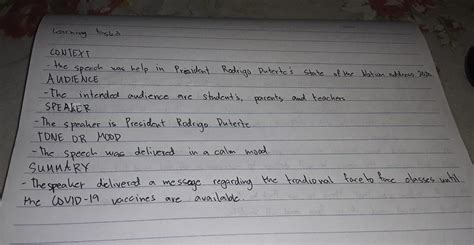 Learning Task 2
CONTEXT
- the speech was help in President Rodrigo Duterte's state of the Nation address 2020
AUDIENCE
- The intended audience are student's, parents and teachers
SPEAKER
- The speaker is President Rodrigo Duterte
TONE OR MOOD
- The speech was delivered in a calm mood
SUMMARY
- The speaker delivered a message regarding the tradioval face to face classes until
the COVID-19 vaccines are available.